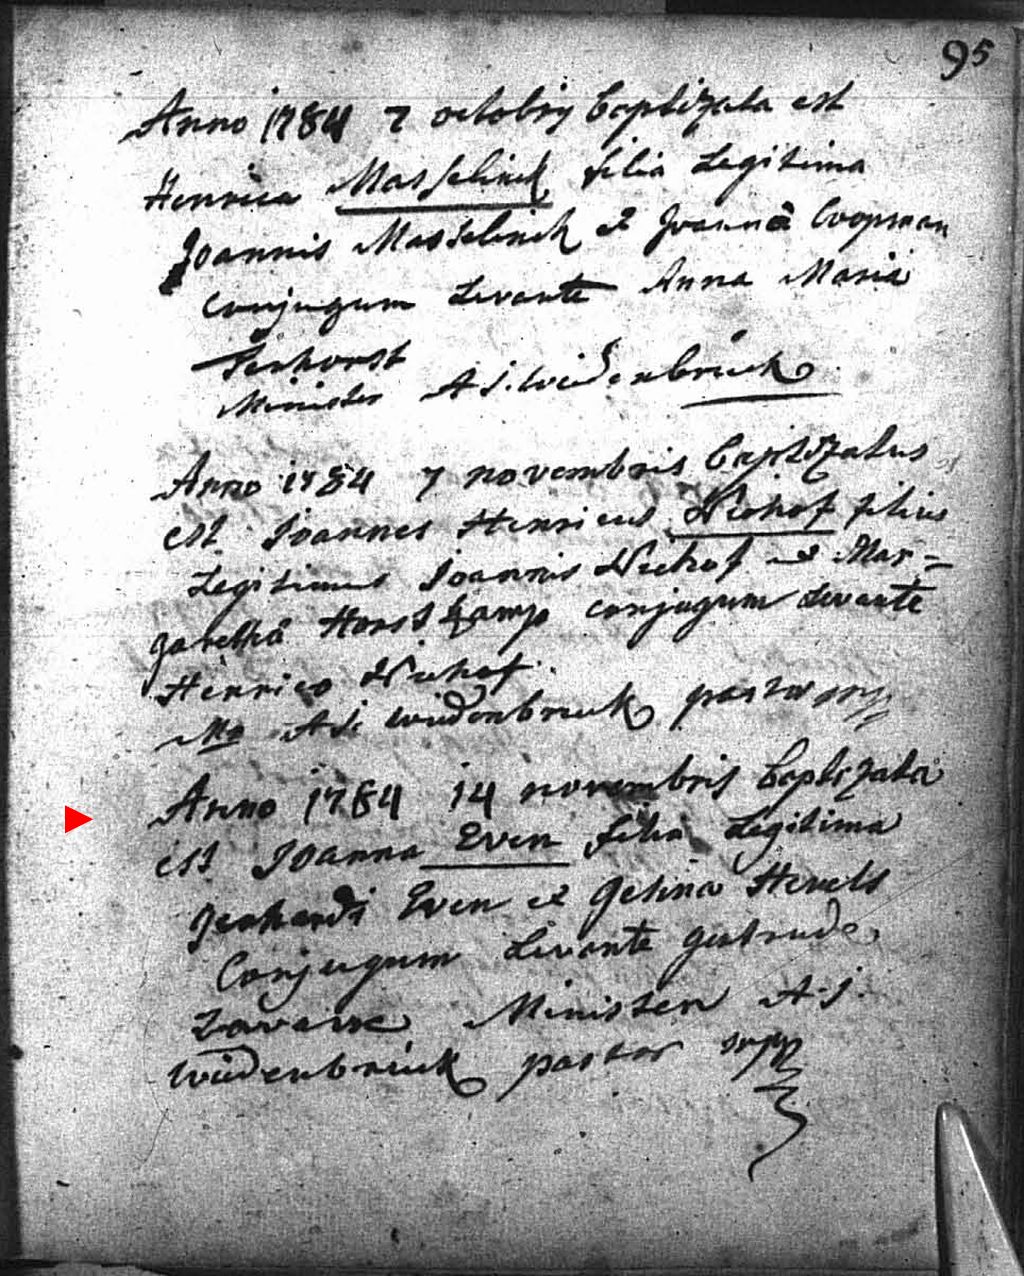 95
Anno 1784 7 octobris baptizata est
Henrica Masselink filia Legitima
Joannis Masselink et Joanna Coopman
conjugum Levante Anna Maria
Minister A J. widenbrück
Anno 1784 7 novembris baptizatus
est Joannes Henricus Niehof filius
Legitimus Joannis Niehof et Mar=
garetha Horstkamp conjugum Levante
Henrico Niehof.
Mr A J widenbruck pastor
Anno 1784 14 novembris baptizata
est Joanna Even filia Legitima
gerhardi Even et gesina Hevels
Conjugum Levante gertrude
Minister A. J.
widenbrück pastor